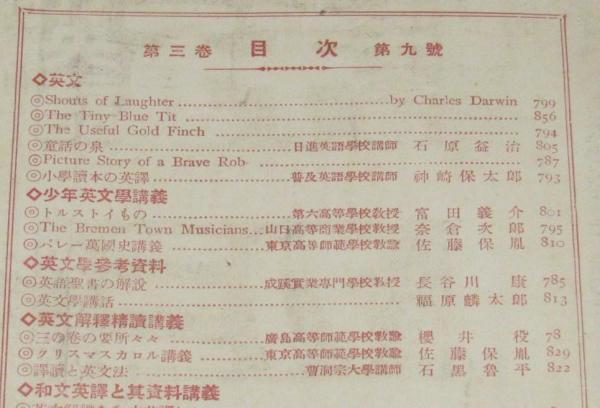 第三卷 目次 第九號
◇英文
◎Shouts of Laughter......by Charles Darwin 799
◎The Tiny Blue Tit......856
◎The Useful Gold Finch......794
◎童話の泉......日進英語學校講師 石原益治 805
◎Picture Story of a Brave Rob......787
◎小學讀本の英譯......普及英語學校講師 神崎保太郎 793
◇少年英文學講義
◎トルストイもの......第六高等學校敎授 富田義介 801
◎The Bremen Town Musicians...山口高等商業學校敎授 奈倉次郎 795
◎バレー萬國史講義......東京高等師範學校敎諭 佐藤保胤 810
◇英文學參考資料
◎英語聖書の解說......成蹊實業專門學校敎授 長谷川康 785
◎英文學講話......福原麟太郎 813
◇英文解釋精讀講義
◎三の卷の要所々々......廣島高等師範學校敎諭 櫻井役 78
◎クリスマスカロル講義......東京高等師範學校敎諭 佐藤保胤 829
◎譯讀と英文法......曹洞宗大學講師 石黑魯平 822
◇和文英譯と其資料講義